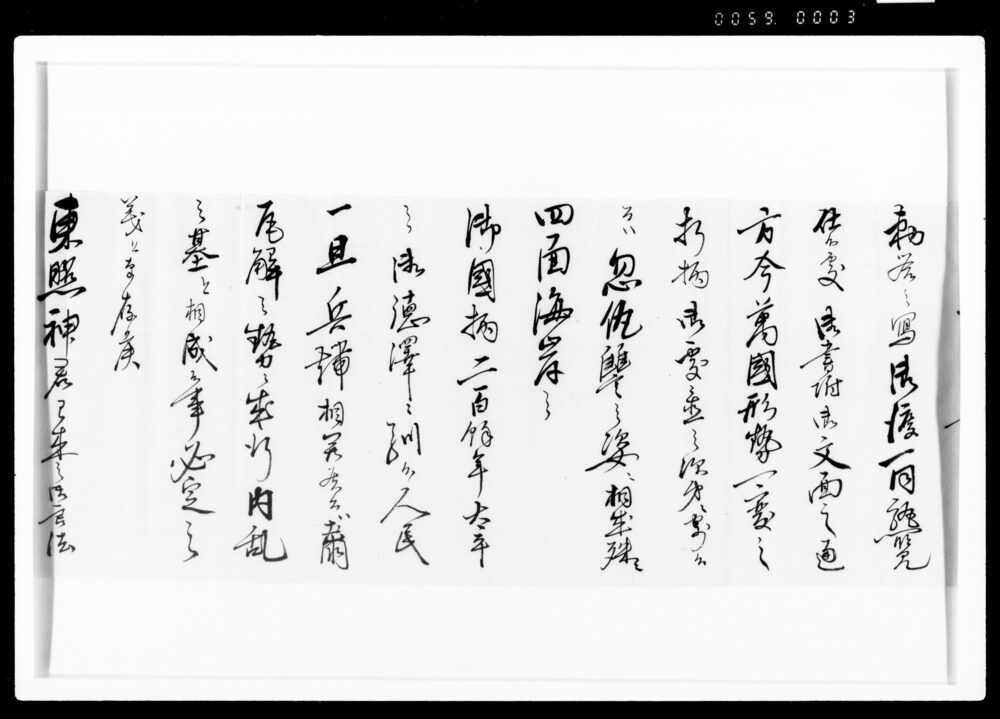 0059. 0003
勅答之写御渡一同熟覧
仕候處御書附御文面之通
方今萬國形勢一変之
折柄御處置之次第ニ寄候
ハ忽仇讐之姿ニ相成殊ニ
四面海岸之
御國柄二百餘年太平
之御徳澤ニ馴候人民
一旦兵端相開候ハ、忽
瓦解之勢ニ成行内乱
之基と相成候事必定之
義と奉存候
東照神君已来之御家法